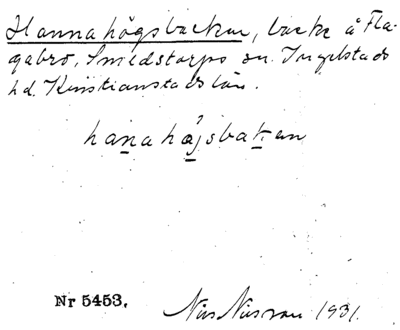 Hannahögsbackar, backe å Fla-
gabro, Smedstorps sn. Ingelstads
hd. Kristianstads län.
hanahåjsbakan
Nr 5453.
Nils Nilsson 1931.